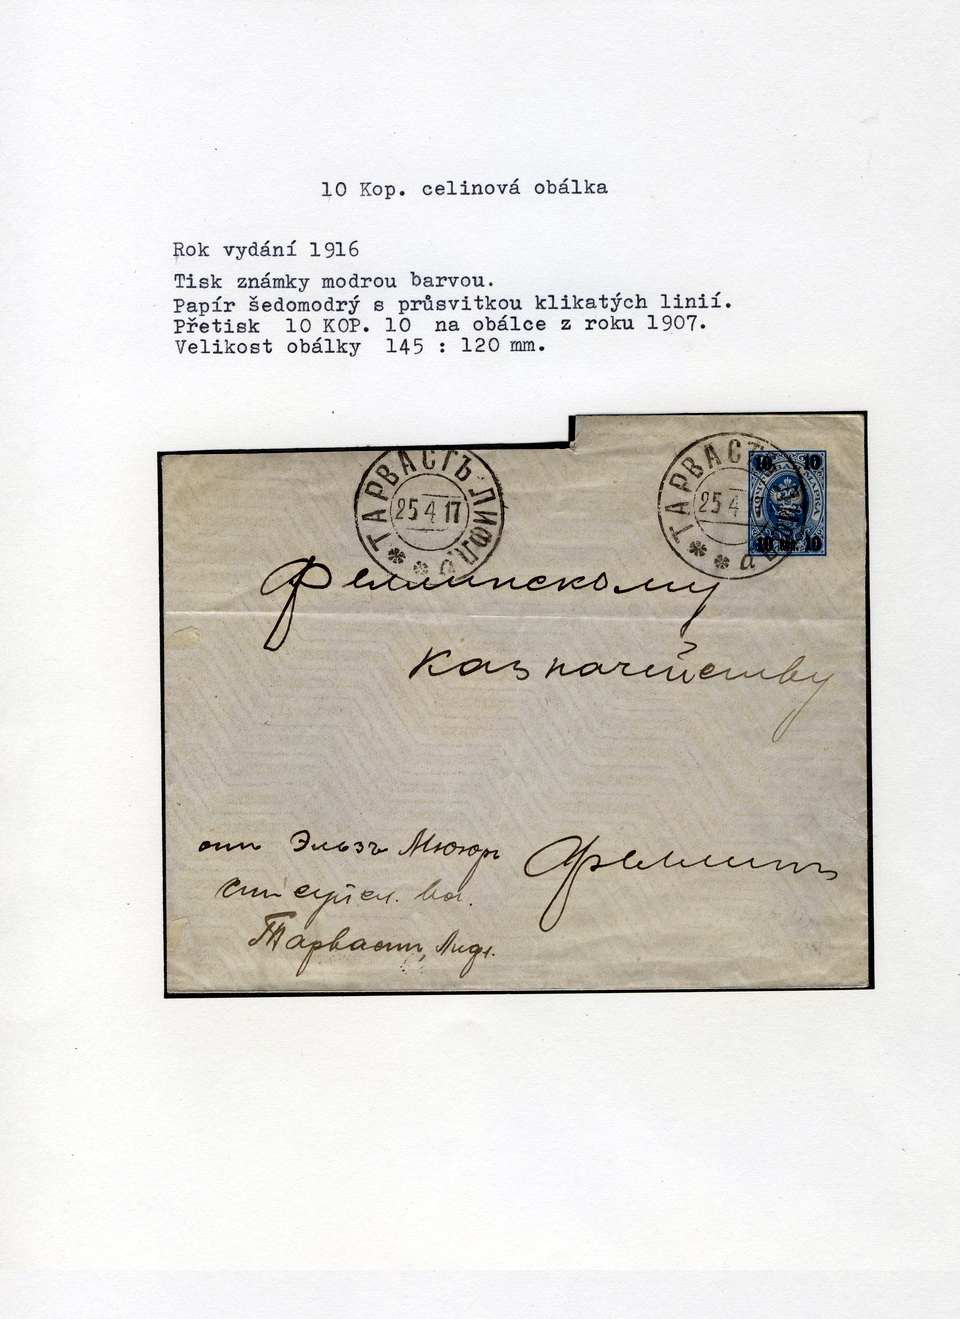 10 Kop. celinová obálka
Rok vydání 1916
Tisk známky modrou barvou.
Papír šedomodrý s průsvitkou klikatých linií.
Přetisk 10 KOP. 10 na obálce z roku 1907.
Velikost obálky 145 : 120 mm.
ТАРВАСТЪ ЛИФЛ
25 4 17
ТАРВАСТ
25 4
10 10
МАРКА
10 10
Феллинскому
казначейству
отъ Эльзъ Мююръ
Феллинъ
Тарвастъ, Лифл.